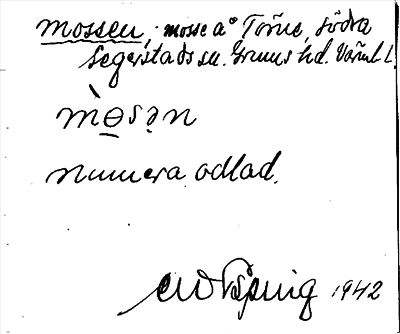 mossen, mosse å Torne, södra
Segerstads sn. Grums hd. Värml. l.
mɵ̀sən
numera odlad.
1942